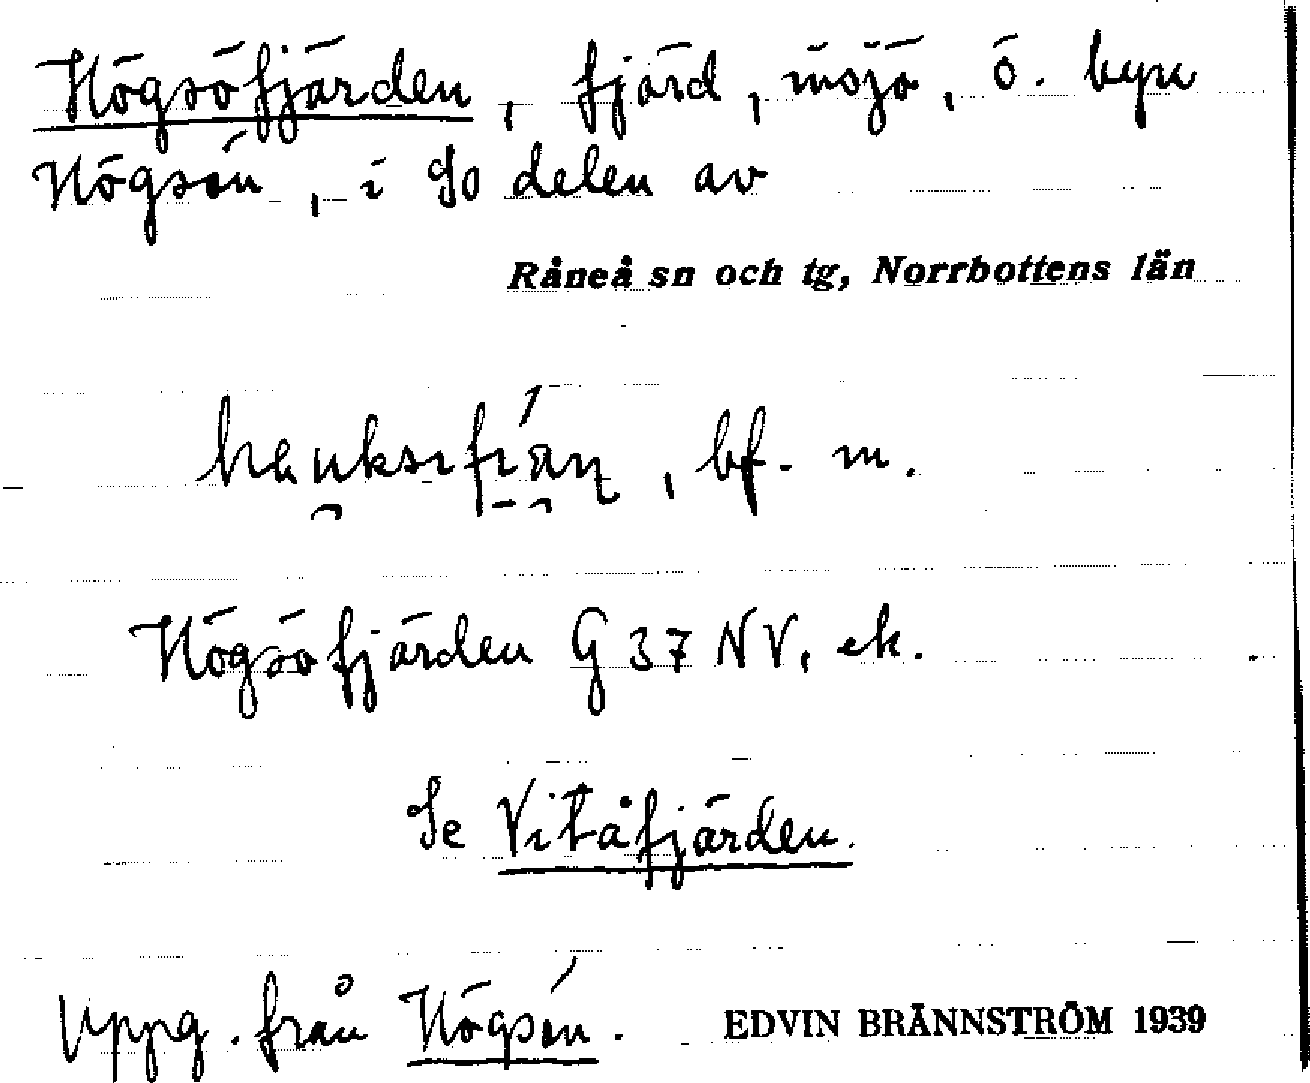 Högsöfjärden, fjärd, insjö, ö. byn
Högsön, i So delen av
Råneå sn och tg, Norrbottens län
bf. m.
Högsöfjärden G 37 NV, ek.
Se Vitåfjärden.
Uppg. från Högsön. EDVIN BRÄNNSTRÖM 1939